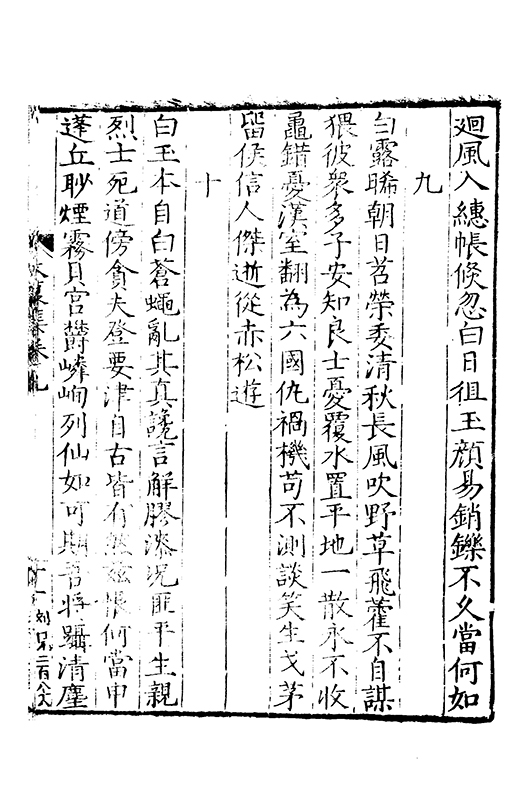 廻風入繐帳倐忽白日徂玉顔易銷鑠不久當何如
九
白露晞朝日苕榮委清秋長風吹野草飛藿不自謀
猥彼衆多子安知良士憂覆水置平地一散永不收
鼂錯憂漢室翻為六國仇禍機苟不測談笑生戈茅
留侯信人傑逝從赤松遊
十
白玉本自白蒼蠅亂其真讒言解膠漆况匪平生親
烈士死道傍貪夫登要津自古皆有然玆悵何當申
蓬丘眇煙霧貝宫欝嶙峋列仙如可期吾將躡清塵
集卷九